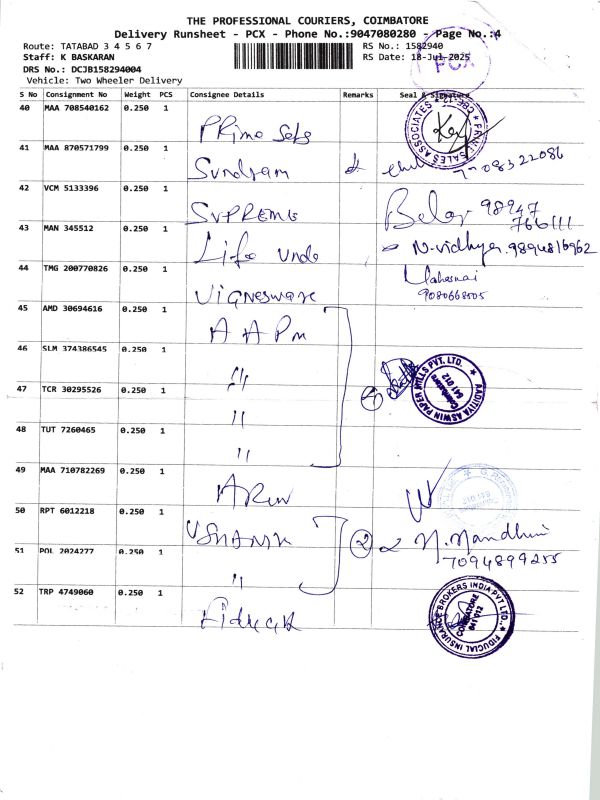 THE PROFESSIONAL COURIERS, COIMBATORE
Delivery Runsheet - PCX - Phone No.:9047080280 - Page No.:4
Route: TATABAD 3 4 5 6 7 RS No.: 1582940
Staff: K BASKARAN RS Date: 18-Jul-2025
PCX
DRS No.: DCJB158294004
Vehicle: Two Wheeler Delivery
S No Consignment No Weight PCS Consignee Details Remarks Seal & Signature
40 MAA 708540162 0.250 1
Prime Sales
PRIME SALES ASSOCIATES ★ CBE-12 ★
41 MAA 870571799 0.250 1
Sundram
42 VCM 5133396 0.250 1
SUPREME 98947
766111
43 MAN 345512 0.250 1
Life N-vidhya. 9894816962
44 TMG 200770826 0.250 1
Vigneswara 9080668505
45 AMD 30694616 0.250 1
A A Pm
46 SLM 374386545 0.250 1
"
AADITYA ASWIN PAPER MILLS PVT. LTD.
Coimbatore
641 012
47 TCR 30295526 0.250 1
"
48 TUT 7260465 0.250 1
"
49 MAA 710782269 0.250 1
Arun
50 RPT 6012218 0.250 1
2 N. Nandhini
7094899255
51 POL 2024277 0.250 1
"
52 TRP 4749060 0.250 1
FIDUCIAL INSURANCE BROKERS INDIA PVT LTD.,
COIMBATORE
641 012